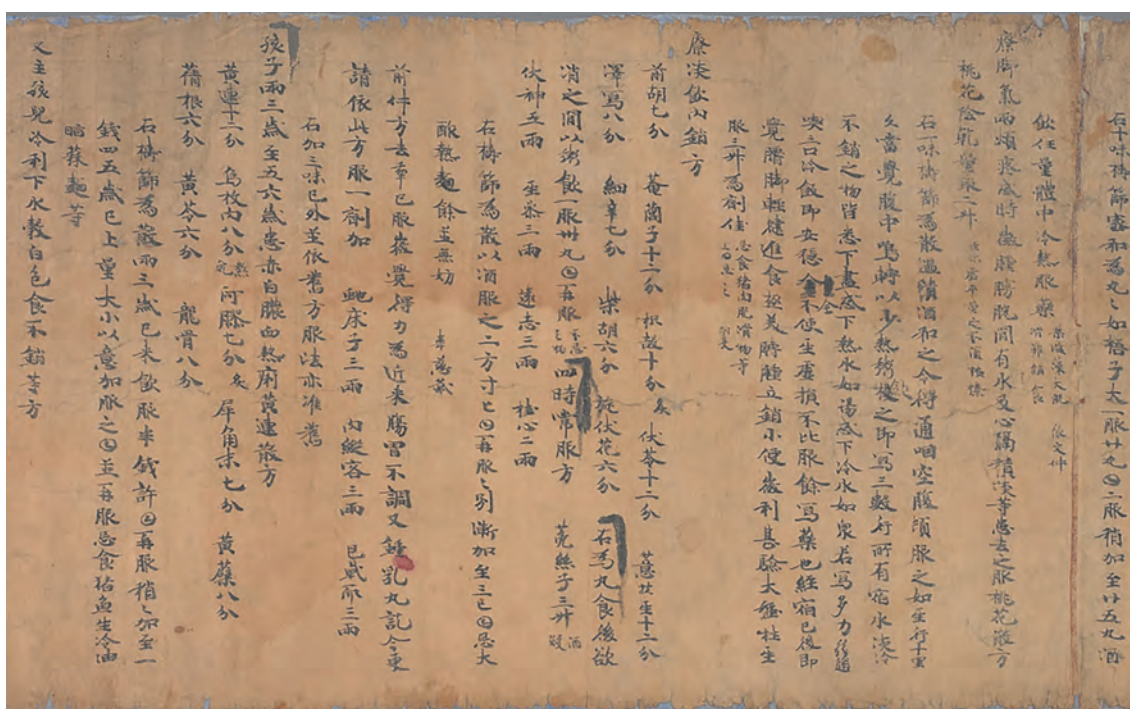 右十味擣篩蜜和為丸々如梧子大一服廿丸日二服稍加至廿五丸酒
飲任量體中冷熱服藥
張文仲
療脚氣及腰腎膀胱間有水及心隔積淡等患去之服桃花散方
桃花陰乾量取二升
右一味擣篩為散溫清酒和之令得通咽空腹頓服之如人行十里
久當覺腹中鳴轉以少熱粥投之即寫三數行所有宿水淡冷
不銷之物皆悉下盡或下熱水如湯或下冷水如泉若寫多力
喫三口冷飯即安穩全不使人虛損不比服餘寫藥也經宿已後即
覺腰脚輕健進食極美時腫立銷小便微利甚驗大
服三升為劑佳 忌食猪肉
療淡飲內銷方
前胡七分 菴䕡子十二分 枳殼十分炙 伏苓十二分 薏苡人十二分
澤寫八分 細辛七分 柴胡六分 旋伏花六分
右為丸食後欲
消之間以粥飲一服卅丸日再服 四時常服方
菟絲子三升酒
伏神五兩 人參三兩 遠志三兩 桂心二兩
右擣篩為散以酒服之二方寸匕日再服々別漸加至三匕日忌大
酢熱麵餘並無妨
前件方去年已服茲覺得力為近來腸胃不調又鍾乳丸訖今更
請依此方服一劑加 虵床子三兩 肉縱容三兩 巴戟天三兩
右加三味已外並依舊方服法亦准舊
孩子兩三歲至五六歲患赤白膿血熱痢黃連散方
黃連十二分 烏梅肉八分熬 阿膠七分炙 犀角末七分 黃蘗八分
茜根六分 黃芩六分 龍骨八分
右擣篩為散兩三歲已來飲服半錢許日再服稍々加至一
錢四五歲已上量大小以意加服之日並再服忌食猪魚生冷油
麵等
又主孩兒冷利下水穀白色食不銷等方